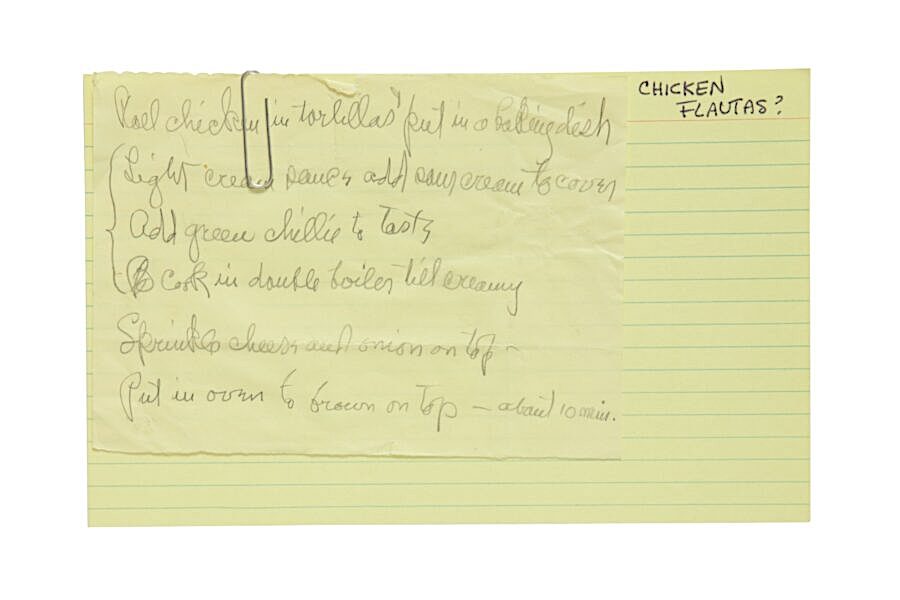 CHICKEN
FLAUTAS?
Roll chicken in tortillas put in a baking dish
Light cream sauce add sour cream to cover
Add green chillie to taste
cook in double boiler till creamy
Sprinkle cheese and onion on top –
Put in oven to brown on top – about 10 min.